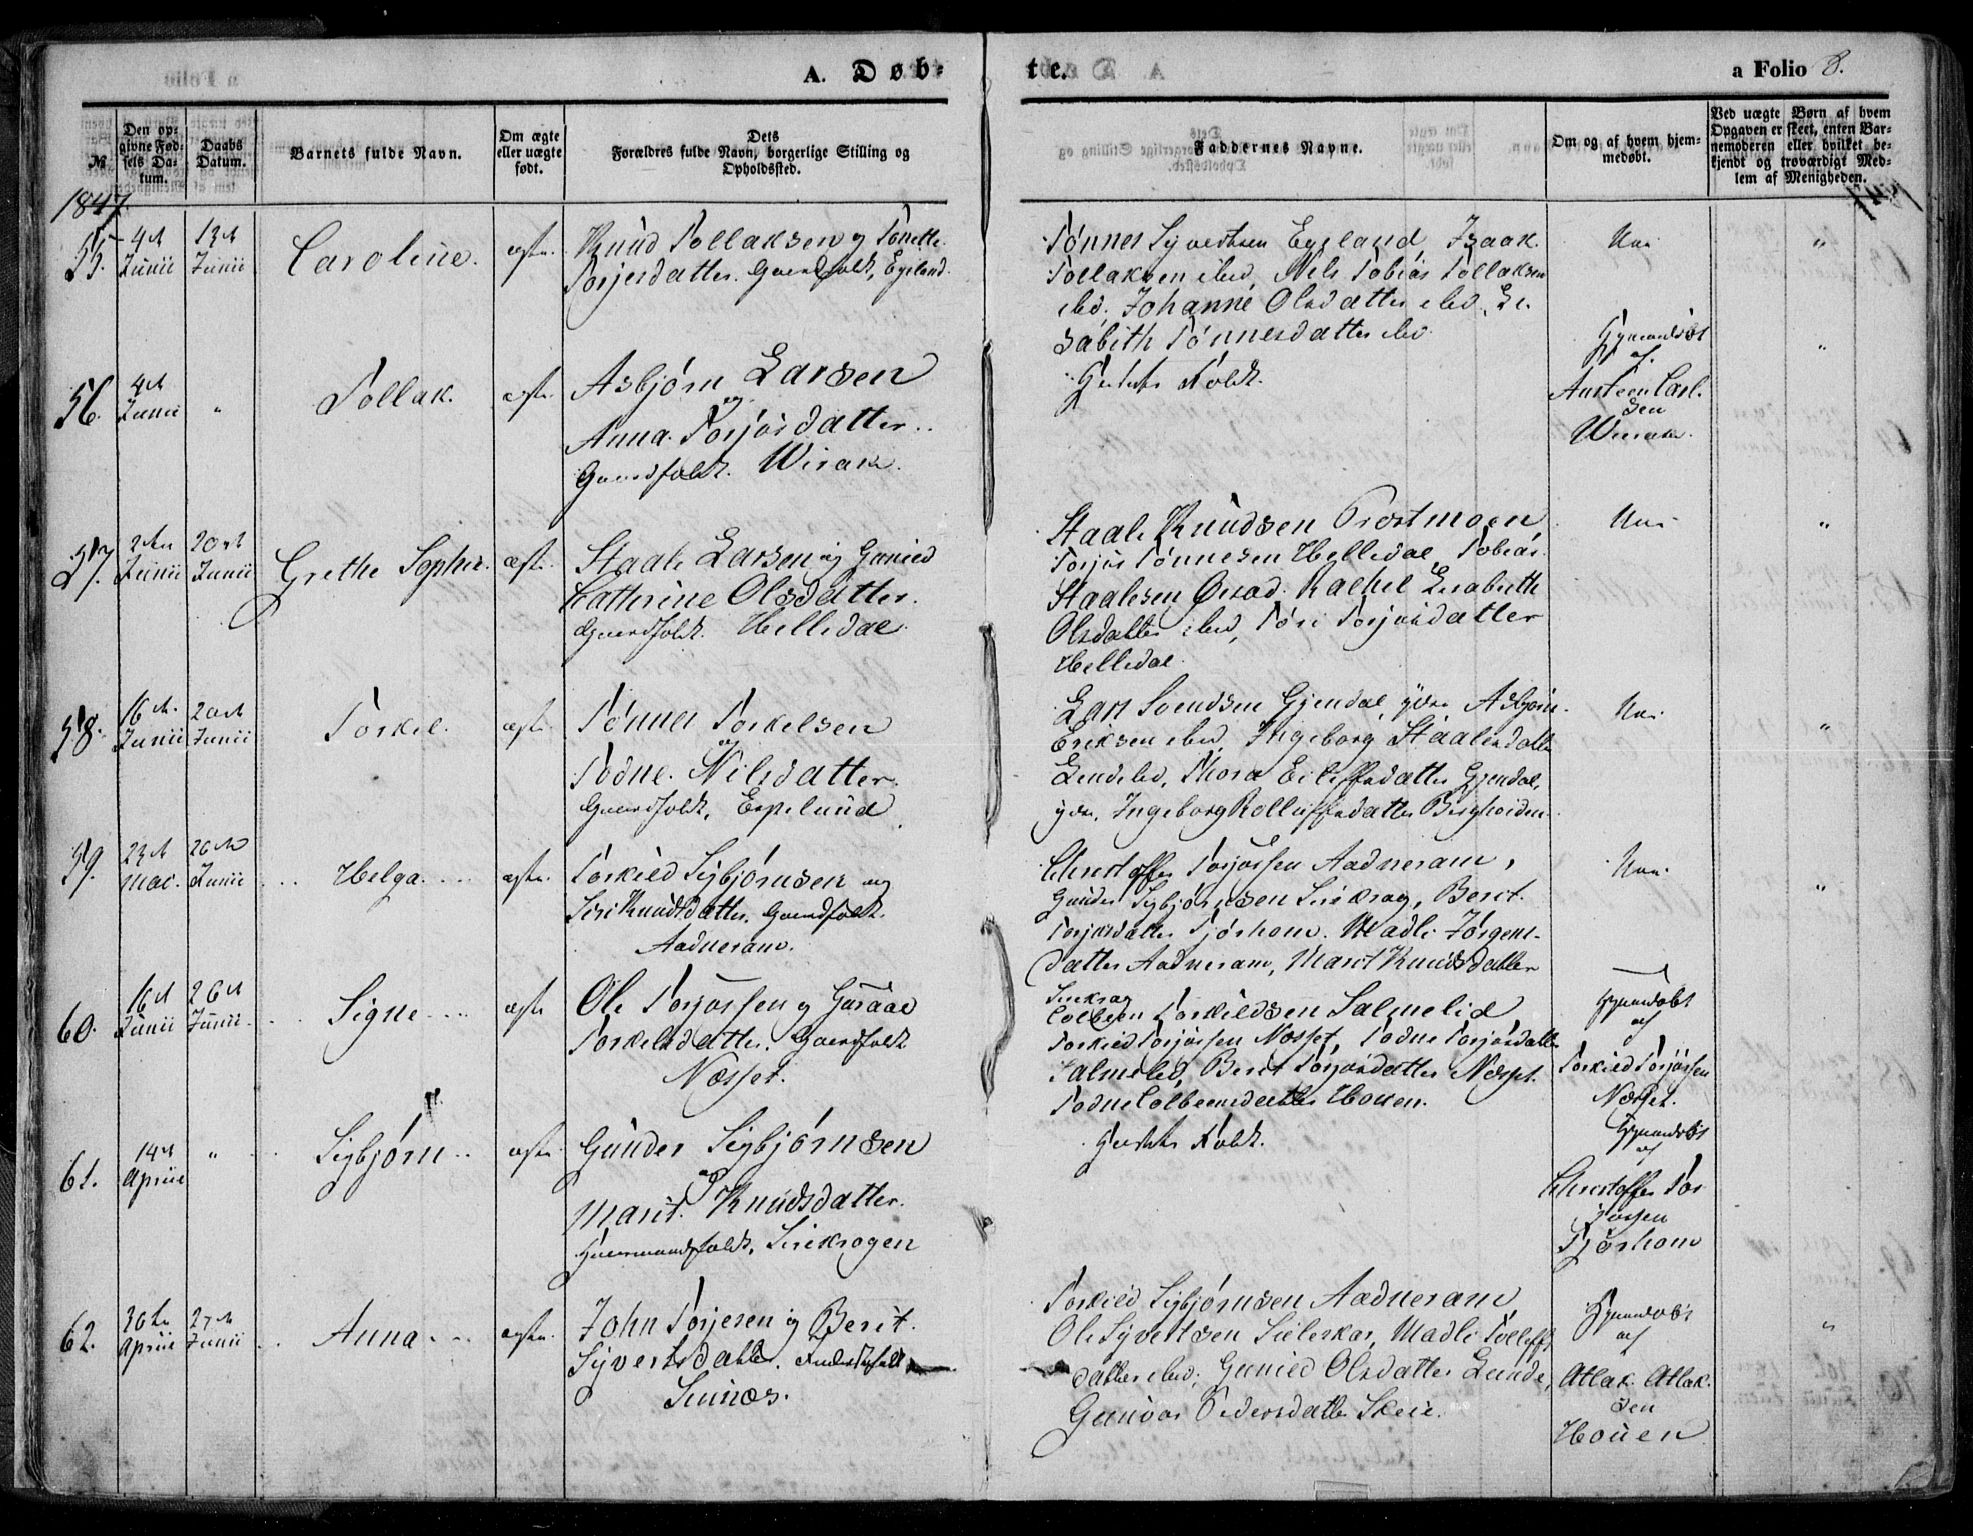 A. Døb-
te.
a Folio 8.
№
Den op-
givne Fød-
sels Da-
tum.
Daabs
Datum.
Barnets fulde Navn.
Om ægte
eller uægte
født.
Dets
Forældres fulde Navn, borgerlige Stilling og
Opholdssted.
Faddernes Navne.
Om og af hvem hjem-
medøbt.
Ved uægte Børn af hvem
Opgaven er skeet, enten Bar-
nemoderen eller hvilket be-
kjendt og troværdigt Med-
lem af Menigheden.
1847.
1847
55.
4de
Junii
13de
Junii
Caroline.
ægte.
Knud Tollaksen og Tonette
Torjersdatter. Gaardfolk, Egeland.
Tønnes Syvertsen Egeland, Isaak
Tollaksen ibid, Nils Tobias Tollaksen
ibd, Johanne Olsdatter ibd, Li-
sabith Tønnesdatter ibd.
Nei
"
56.
4de
Junii
"
Tollak.
ægte.
Asbjørn Larsen
og
Anna Torjosdatter.
Gaardfolk. Wirak.
Hjemdøbt
af
Austeen Carl-
sen
Wirak.
"
57.
2den
Junii
20de
Junii
Grethe Sophie.
ægte.
Staale Larsen og Gunild
Catherine Olsdatter.
Gaardfolk. Helledal.
Staale Knudsen Præstmoen
Torjus Tønnesen Helledal, Tobias
Staalesen Ørsad. Rachel Lisabeth
Olsdatter ibid, Tori Torjosdatter
Helledal.
Nei
"
58.
16de
Junii
20de
Junii
Torkel.
ægte.
Tønnes Torkelsen
og
Todne Nilsdatter.
Gaardfolk, Espelund
Lars Svendsen Gjendal ydre Asbjørn
Eriksen ibid, Ingeborg Staalesdatter
Thora Eileffsdatter Gjendal,
ydre, Ingeborg Rolleffsdatter
Nei
"
59.
23de
Mai.
26de
Junii
Helga.
ægte.
Torkild Sigbjørnsen og
Siri Knudsdatter. Gaardfolk.
Aadneram.
Christoffer Torjussen Aadneram,
Gunder Sigbjørnsen Sirekrog, Berit
Torjusdatter Tjørhom. Madli Jørgens-
datter Aadneram, Marit Knudsdatter
Sirekrog
Nei
"
60.
16de
Junii
26de
Junii
Signe
ægte
Ole Torjussen og
Torkelsdatter. Gaardfolk
Næsset.
Torkildsen Salmelid
Torkild Torjussen Næsset, Todne Torjusdatter
Salmelid, Berit Torjusdatter Næsset.
Todne Colbeensdatter Houen.
Hjemdøbt
af
Torkild Torjussen
Næsset.
61.
14de
Aprill
"
Sigbjørn
ægte.
Gunder Sigbjørnsen
og
Marit Knudsdatter.
Huusmandsfolk, Sirekrogen
Hjemdøbt
af
Christoffer Tor
jussen
Tjørhom
62.
30te
Aprill
27de
Junii
Anna
ægte.
John Torjesen og Berit
Syvertsdatter.
Sinnæs.
Torkild Sigbjørnsen Aadneram
Ole Syvertsen Sieleskar, Madli Tolleffs
datter ibid, Gunild Olsdatter Lunde,
Gunvor Pedersdatter Skeie.
Hjemdøbt
af
Atlak Atlak-
sen
Houen
"